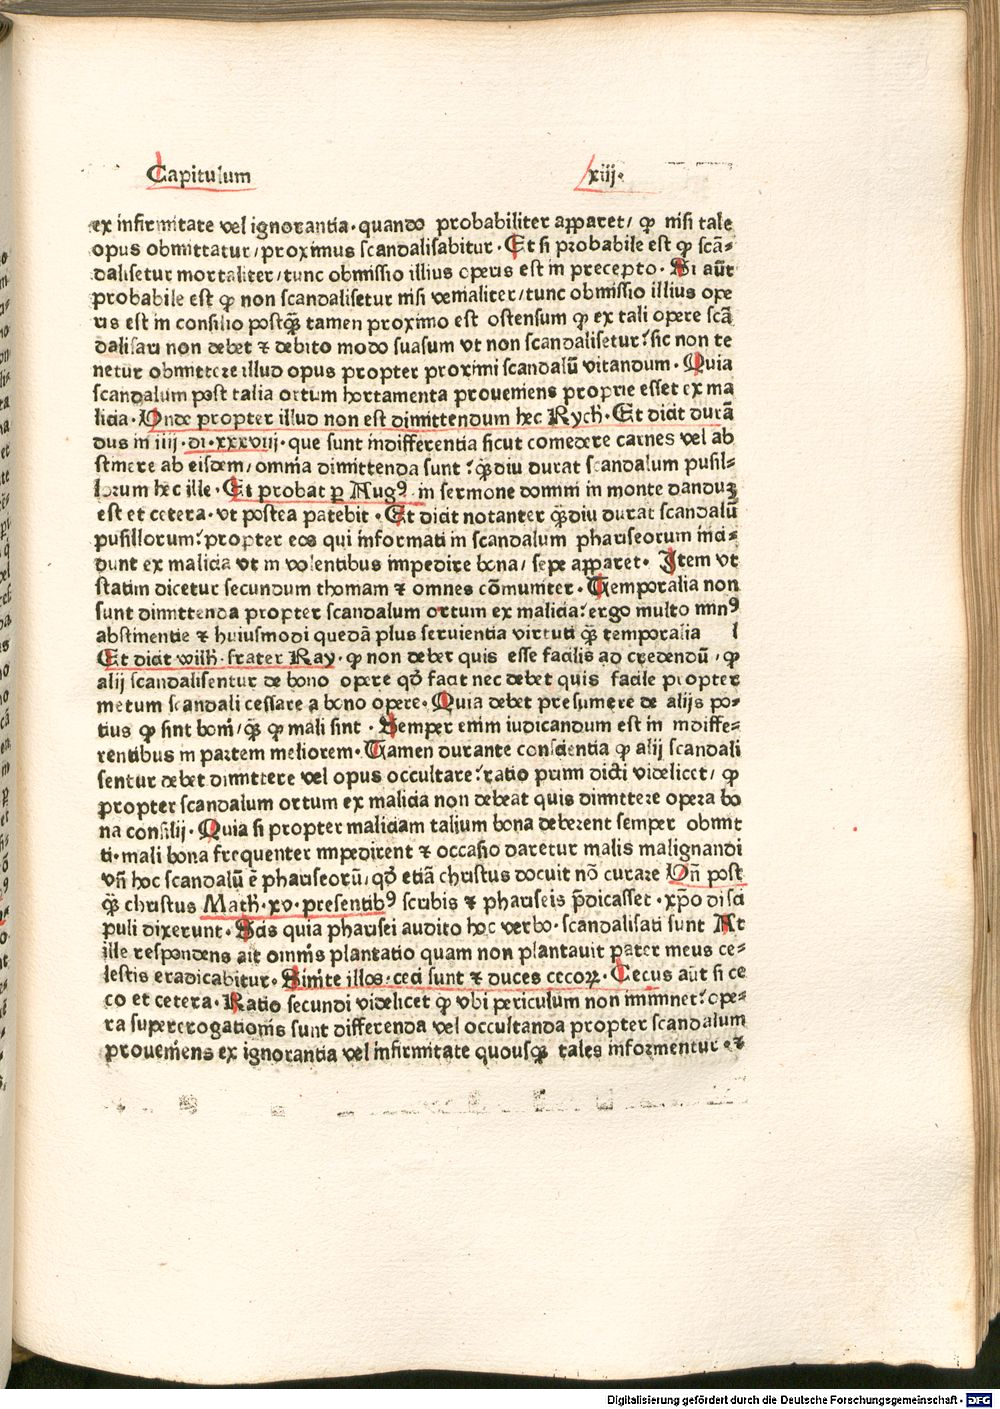 Capitulum xiij.
ex infirmitate vel ignorantia. quando probabiliter apparet/ ꝙ nisi tale
opus obmittatur/ proximus scandalisabitur. Et si probabile est ꝙ scā⸗
dalisetur mortaliter/ tunc obmissio illius operis est in precepto. Si aūt
probabile est ꝙ non scandalisetur nisi venialiter/ tunc obmissio illius ope
ris est in consilio postq̄ꝫ tamen proximo est ostensum ꝙ ex tali opere scā
dalisari non debet ⁊ debito modo suasum vt non scandalisetur? sic non te
netur obmittere illud opus propter proximi scandalū vitandum. Quia
scandalum post talia ortum hortamenta proueniens proprie esset ex ma
licia. Vnde propter illud non est dimittendum hec Rych. Et dicit durā
dus in iiij. di. xxxviij. que sunt indifferentia sicut comedere carnes vel ab
stinere ab eisdem/ omnia dimittenda sunt? q̄ꝫdiu durat scandalum pusil⸗
lorum hec ille. Et probat ꝑ Augꝰ. in sermone domini in monte danduꝫ
est et cetera. vt postea patebit. Et dicit notanter q̄ꝫdiu durat scandalū
pusillorum? propter eos qui informati in scandalum phariseorum inci⸗
dunt ex malicia vt in volentibus impedire bona/ sepe apparet. Item vt
statim dicetur secundum thomam ⁊ omnes cōmuniter. Temporalia non
sunt dimittenda propter scandalum ortum ex malicia? ergo multo minꝰ
abstinentie ⁊ huiusmodi quedā plus seruientia virtuti q̄ꝫ temporalia l
Et dicit wilh. frater Ray. ꝙ non debet quis esse facilis ad credendū, ꝙ
alij scandalisentur de bono opere qd̄ facit nec debet quis facile propter
metum scandali cessare a bono opere. Quia debet presumere de alijs po⸗
tius ꝙ sint boni/ q̄ꝫ ꝙ mali sint. Semper enim iudicandum est in indiffe⸗
rentibus in partem meliorem. Tamen durante conscientia ꝙ alij scandali
sentur debet dimittere vel opus occultare? ratio primi dicti videlicet/ ꝙ
propter scandalum ortum ex malicia non debeat quis dimittere opera bo
na consilij. Quia si propter maliciam talium bona deberent semper obmit
ti. mali bona frequenter impedirent ⁊ occasio daretur malis malignandi
vn̄ hoc scandalū ē phariseorū, qd̄ etiā christus docuit nō curare Vn̄ post
q̄ꝫ christus Math. xv. presentibꝰ scribis ⁊ phariseis p̄dicasset. xp̄o disci
puli dixerunt. Scis quia pharisei audito hoc verbo. scandalisati sunt At
ille respondens ait omnis plantatio quam non plantauit pater meus ce⸗
lestis eradicabitur. Sinite illos. ceci sunt ⁊ duces cecoꝝ. Cecus aūt si ce
co et cetera. Ratio secundi videlicet ꝙ vbi periculum non imminet? ope⸗
ra supererogationis sunt differenda vel occultanda propter scandalum
proueniens ex ignorantia vel infirmitate quousqꝫ tales informentur. ⁊
Digitalisierung gefördert durch die Deutsche Forschungsgemeinschaft - DFG